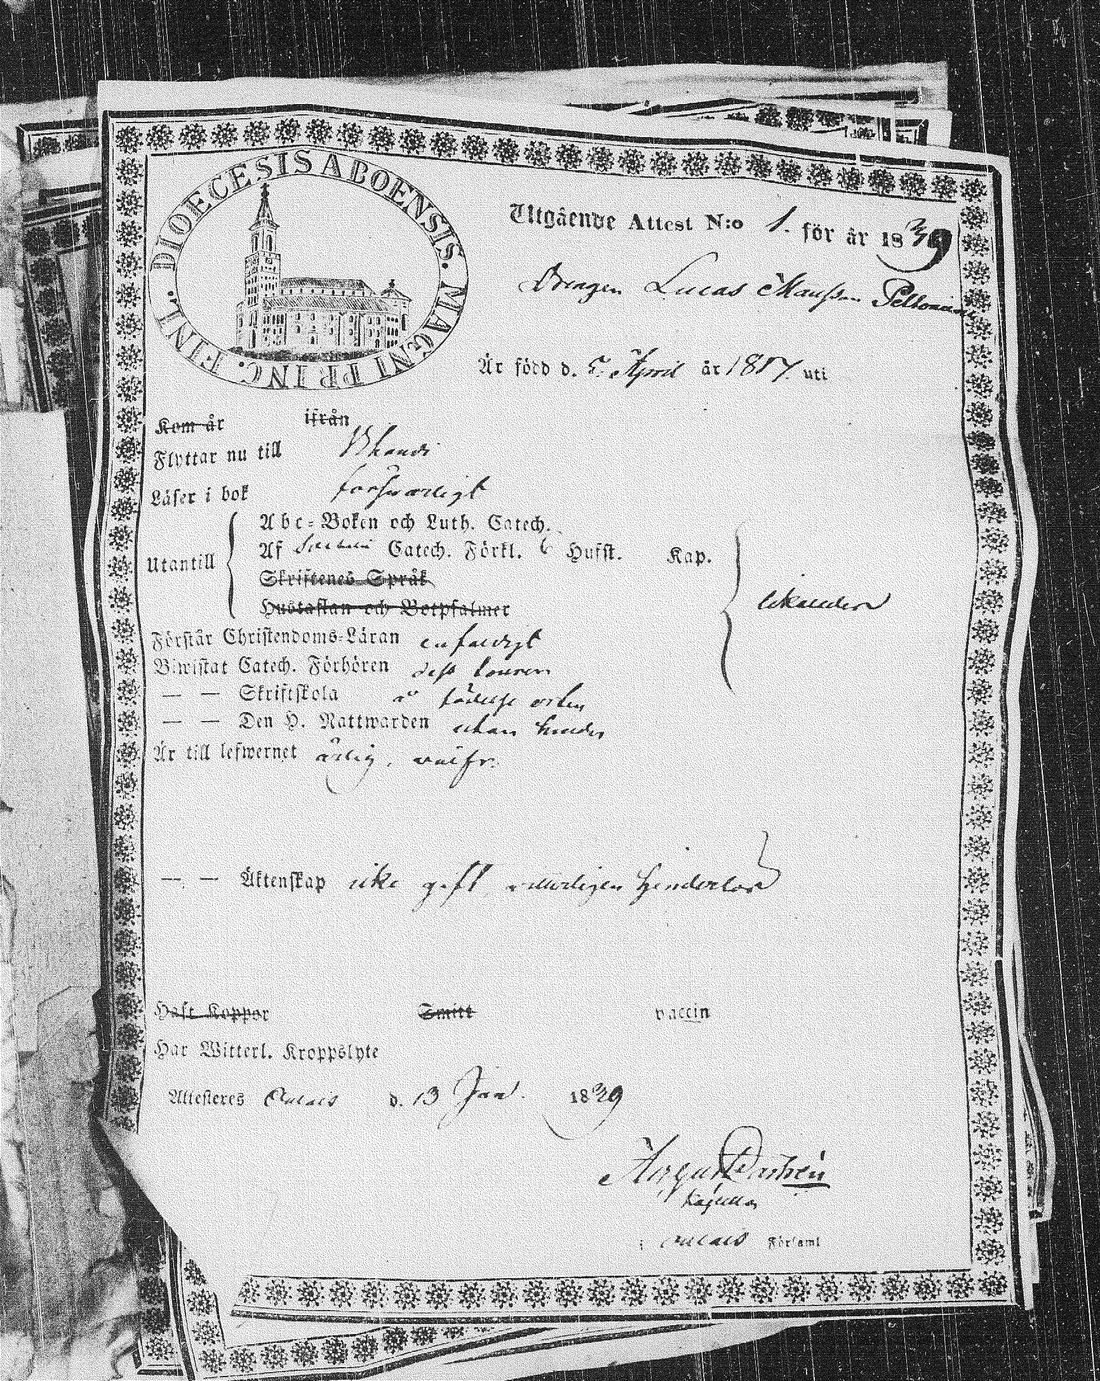 DIOECESIS ABOENSIS. MAGNI PRINC. FINL.
Utgående Attest N:o 1. för år 1839
Drengen Lucas Peltonen
Är född d. 5 April år 1817. uti
Kom år ifrån
Flyttar nu till
Läser i bok försvarligt
Utantill
Abc-Boken och Luth. Catech.
Af Catech. Förkl. 6 Hufst. Kap.
Skriftenes Språk
Hustaflan och Botpsalmer
likaledes
Förstår Christendoms-Läran enfaldigt
Biwistat Catech. Förhören dess
— — Skriftskola å födelse orten
— — Den H. Nattwarden utan hinder
Är till lefwernet ärlig, välfr.
— — Äktenskap icke gift, hinderlös
Haft Koppor Smitt vaccin
Har Witterl. Kroppslyte
Attesteres Oulais d. 13 Jan. 1839
August
Kapellan
i Oulais Församl